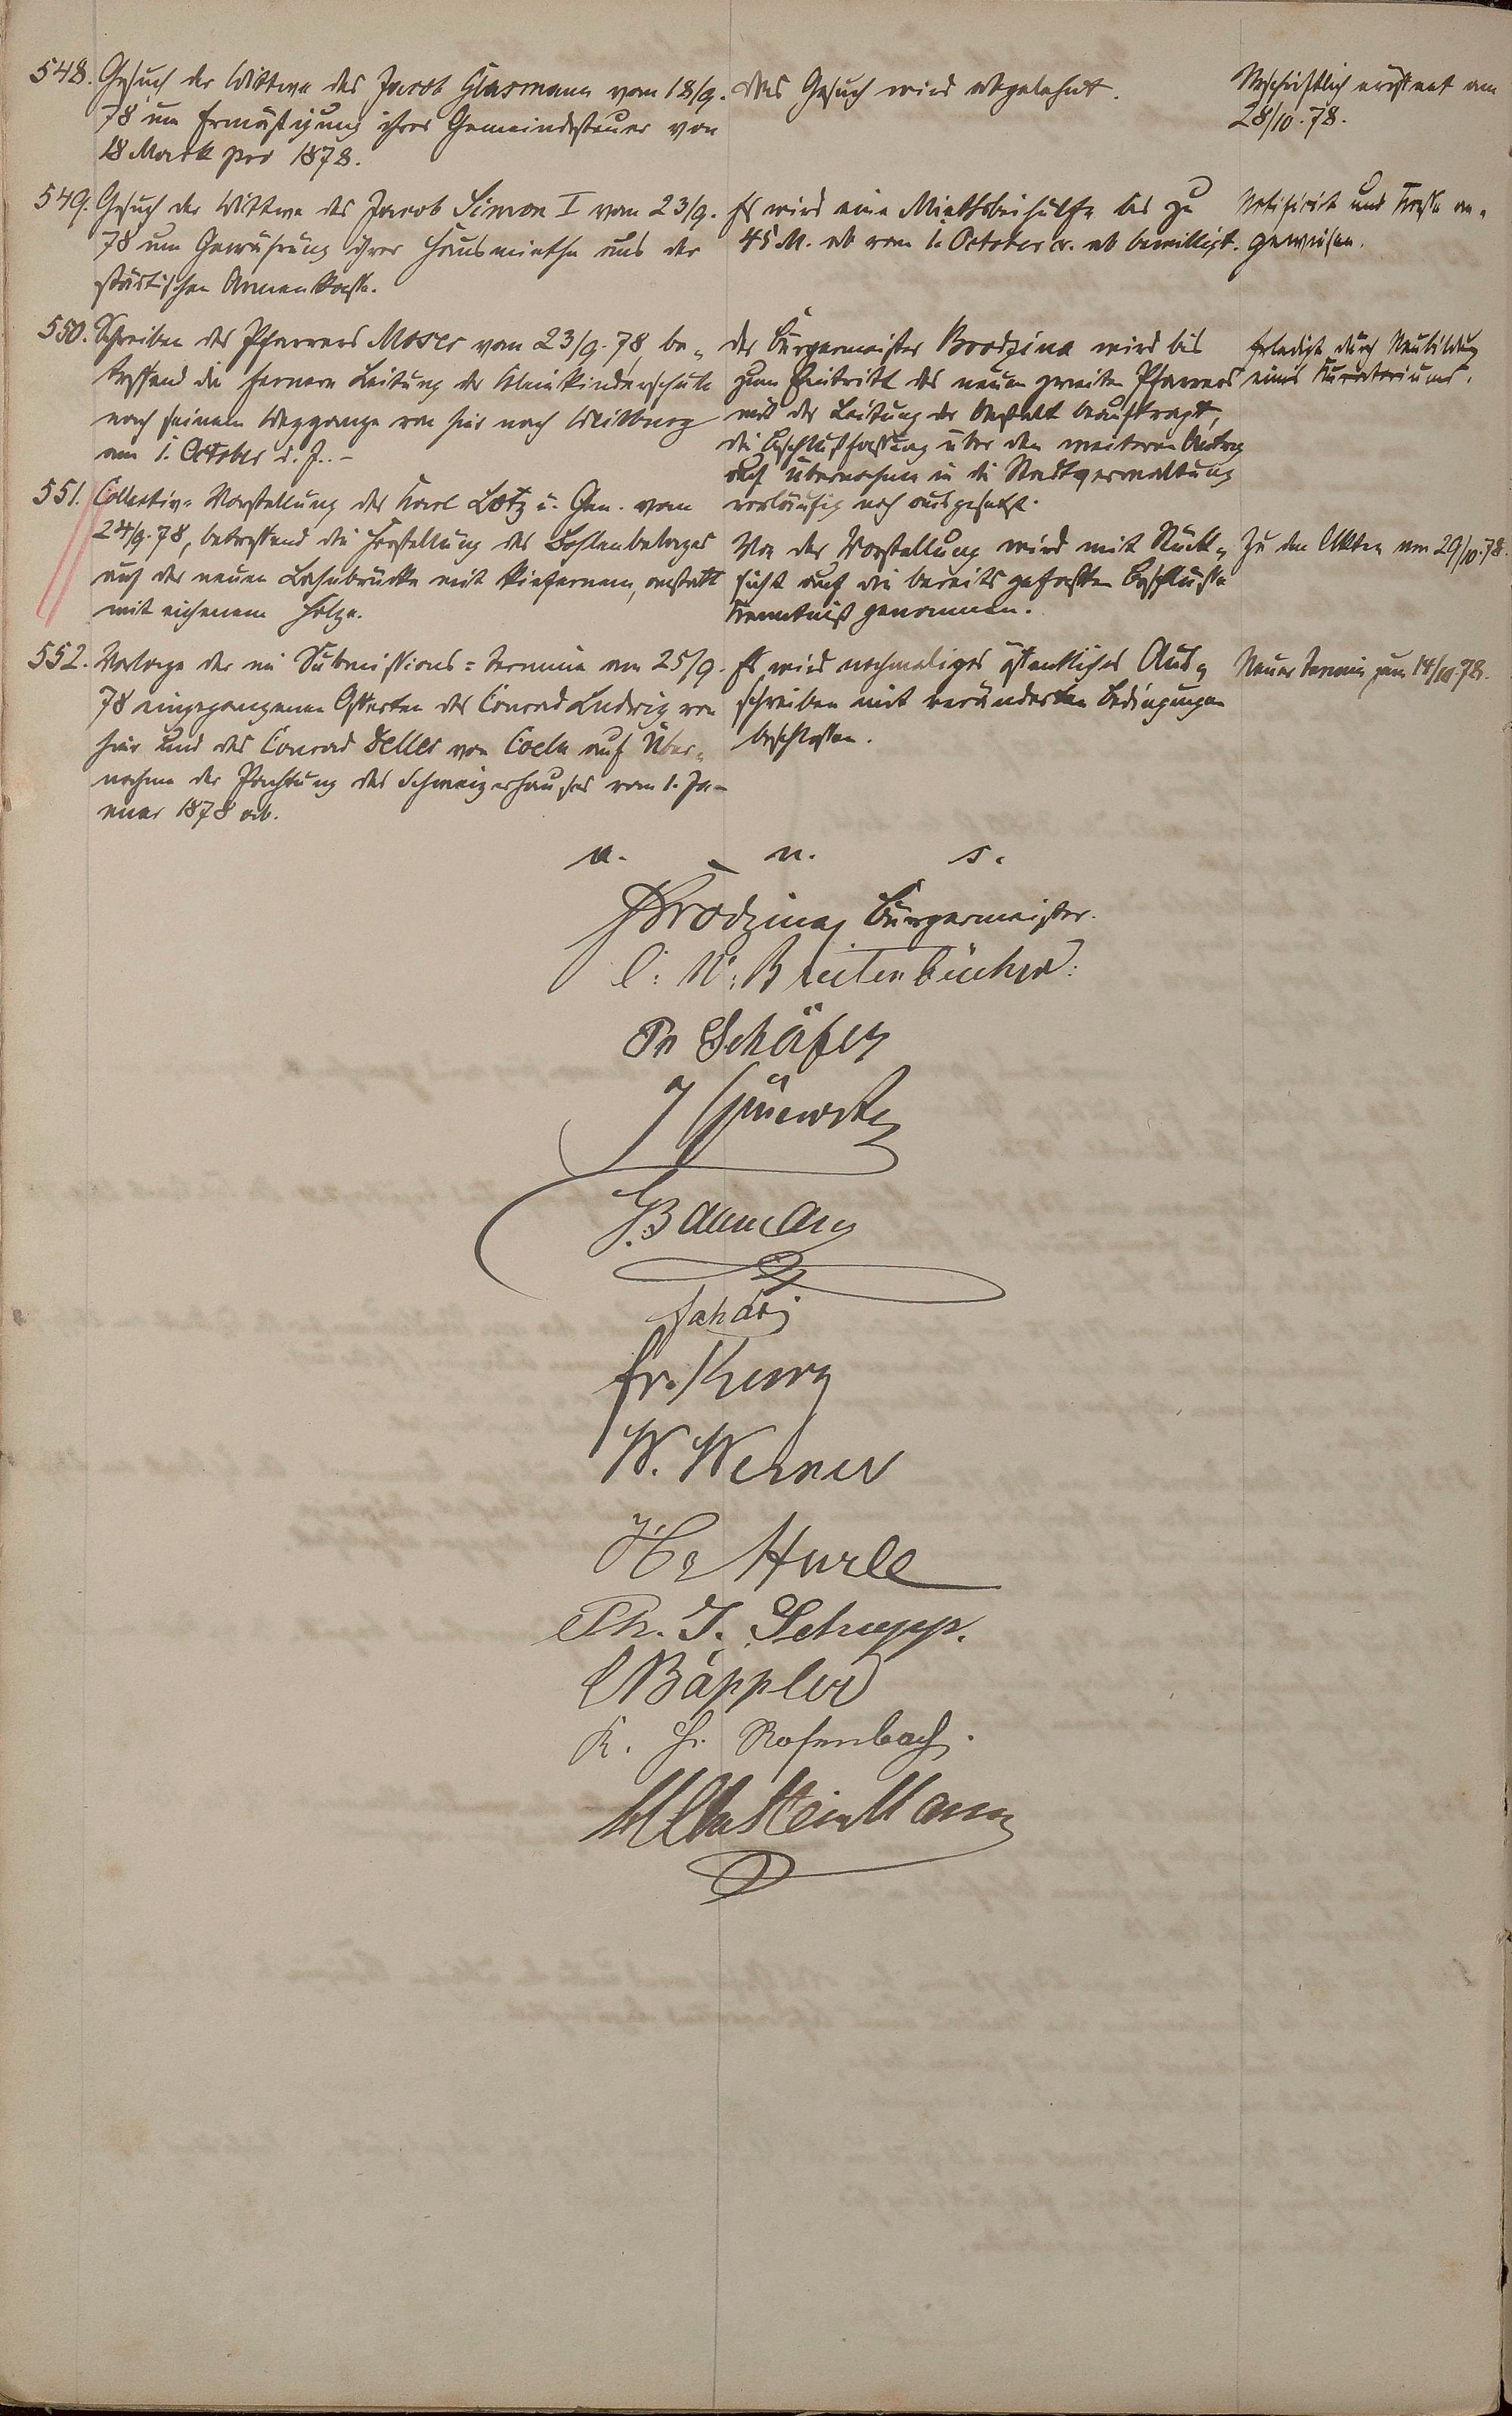 548. Gesuch der Wittwe des Jacob Glasmann vom 18/9.
78 um Ermäßigung ihrer Gemeindesteuer von
18 Mark pro 1878.
Das Gesuch wird abgelehnt.
Abschriftlich eröffnet am
28/10.78.
549. Gesuch der Wittwe des Jacob Simon I vom 23/9.
78 um Gewährung ihrer Hausmiethe aus der
städtischen Armenkasse.
Es wird eine Miethsbeihülfe bis zu
45 M. ab vom 1. October cr. ab bewilligt.
Notificirt und Kasse an-
gewiesen.
550. Schreiben des Pfarrers Moser vom 23/9.78, be-
treffend die fernere Leitung der Kleinkinderschule
nach seinem Weggange von hier nach Weilburg
am 1. October d. J. -
Der Bürgermeister Brodzina wird bis
zum Eintritt des neuen zweiten Pfarrers
mit der Leitung der Anstalt beauftragt,
die Beschlußfassung über den weiteren Antrag
auf Übernahme in die Stadtverwaltung
vorläufig noch ausgesetzt.
Erledigt durch Neubildung
eines Kuratoriums.
551. Collectiv-Vorstellung des Karl Lotz u. Gen. vom
24/9.78, betreffend die Herstellung des Bohlenbelages
auf der neuen Lahnbrücke mit kiefernem, anstatt
mit eichenem Holze.
Von der Vorstellung wird mit Rück-
sicht auf die bereits gefaßten Beschlüsse
Kenntniß genommen.
Zu den Akten am 29/10.78.
552. Vorlage der im Submissions-Termine am 25/9.
78 eingegangenen Offerten des Conrad Ludwig von
hier und des Conrad Deller von Coeln auf Über-
nahme der Pachtung des Schweizerhauses vom 1. Ja-
nuar 1878 ab.
Es wird nochmaliges öffentliches Aus-
schreiben mit veränderten Bedingungen
beschlossen.
Neuer Termin zum 14/10.78.
u. n. s.
Brodzina, Bürgermeister.
C. W. Breitenbücher.
Pr Schäfer
J
G. Baumann
Fr. Kurz
W. Werner
Ph. J. Schupp.
C Bäppler
K. H. Rosenbach.
Steinmann